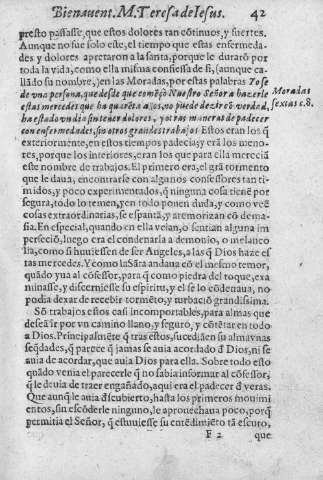 Bienauent. M. Teresa de Iesus. 42
presto passasse, que estos dolores tan cõtinuos, y fuertes.
Aunque no fue solo este, el tiempo que estas enfermeda-
des y dolores apretaron a la santa, porque le durarõ por
toda la vida, como ella misma confiessa de si, (aunque ca-
llãdo su nombre,) en las Moradas, por estas palabras Yo se
de vna persona, que desde que comẽço Nuestro Señor a hazerle
estas mercedes que ha quarẽta años, no puede dezir cõ verdad,
ha estado vn dia sin tener dolores, y otras maneras de padecer
con enfermedades, sin otros grandes trabajos Estos eran los q̃
Moradas
sextas c. 8.
exteriormente, en estos tiempos padecia; y erã los meno-
res, porque los interiores, eran los que para ella merecia
este nombre de trabajos. El primero era, el grã tormento
que le daua, encontrarse con algunos confessores tan ti-
midos, y poco experimentados, q̃ ninguna cosa tienẽ por
segura, todo lo temen, y en todo ponen duda, y como veẽ
cosas extraordinarias, se espantã, y atemorizan cõ dema-
sia. En especial, quando en ella veian, o sentian alguna im
perfeciõ, luego era el condenarla a demonio, o melanco
lia, como si huuiessen de ser Angeles, a las q̃ Dios haze es
tas mercedes. Y como la Sãta andaua cõ el mesmo temor,
quãdo yua al cõfessor, para q̃ como piedra del toque, exa
minasse, y discerniesse su espiritu, y el se lo cõdenaua, no
podia dexar de recebir tormẽto, y turbaciõ grandissima.
Sõ trabajos estos casi incomportables, para almas que
desean ir por vn camino llano, y seguro, y cõtẽtar en todo
a Dios. Principalmẽte q̃ tras estos, sucediã en su alma vnas
seq̃dades, q̃ parece q̃ jamas se auia acordado d̃ Dios, ni se
auia de acordar, que auia Dios para ella. Sobre todo esto
quãdo venia el parecerle q̃ no sabia informar al cõfessor,
q̃ le deuia de traer engañado, aqui era el padecer d̃ veras.
Que aunq̃ le auia d̃scubierto, hasta los primeros mouimi
entos, sin escõderle ninguno, le aprouechaua poco, porq̃
permitia el Señor, q̃ estuuiesse su entẽdimiẽto tã escuro,
F 2 que